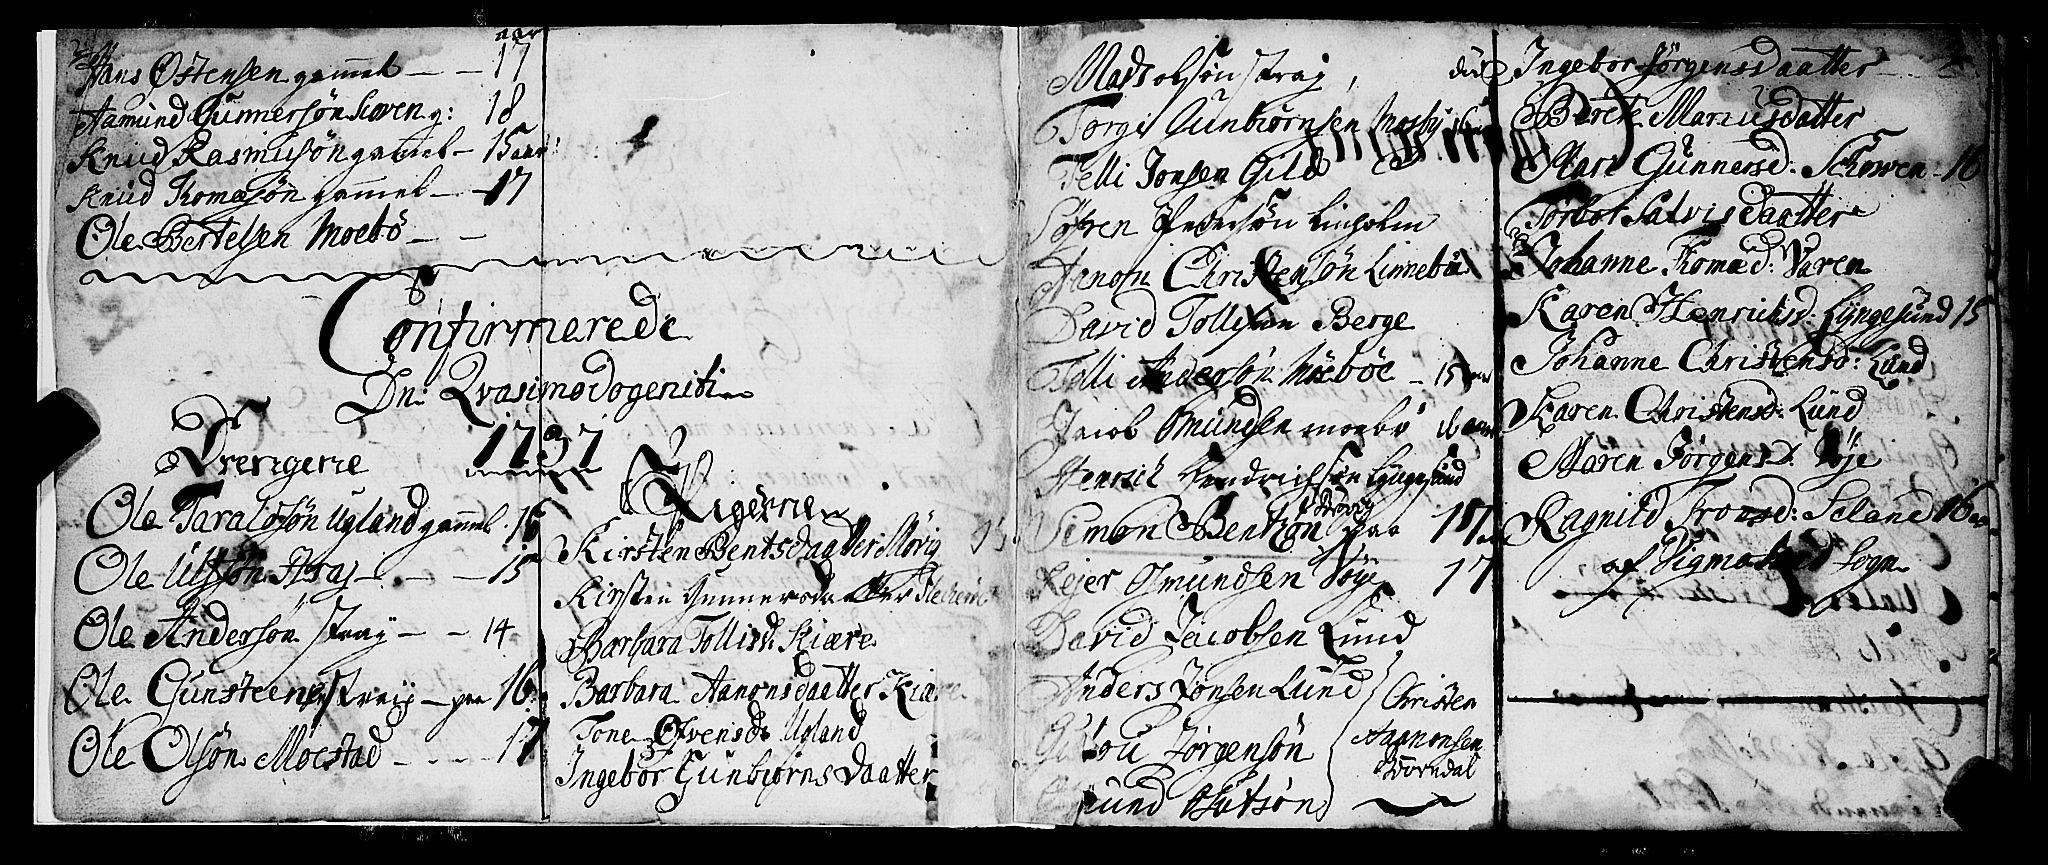 aar
Hans Østensen gammel - - 17
Aamund Gunnersøn Scoven g: 18
Knud Rasmusøn gamel - 15 aar
Knud Tomæsøn gammel - 17
Ole Bertelsen Moebö - -
Confirmerede
Dn: Qvasimodogeniti
1737
Drengene
Ole Taraldsøn Ugland gammel 16
Ole Ulfsøn Straj - - 15
Ole Andersøn Straÿ - - 14
Ole Gunsteens Straÿ - 16
Ole Olsøn Moestad - - - 17
Pigerne
Kirsten Bentsdaatter Møvig 15
Kirsten Gunnersdaatter
Barbara Tollisd: Kiære
Barbara Aanonsdaatter Kiære
Tone Ofvensd: Ugland
Ingebor Gunbiørnsdaatter
Mads olsøn Straj
Torgis Gunbiørnsen Mosby 16
Telli Jonsen Gild
Sören Pedersøn Lindholm
Aanon Christensøn Linnebö
David Tollisøn Berge
Tolli Andersøn Möeböe - 15 aar
Jacob Omundsen moebö 16 aar
Henrich Hendrichsøn Lÿngesund
Simon Bentsøn Møvig 17
Reier Osmundsen Vöje 17
David Jacobsen Lund
Anders Jonsen Lund
Jörgensön
Christen
Aaanonsen
Ingebor Jörgensdaatter
Berete Mariusdatter
Mari Gunnersd: Schowen - 16
Torbor Salvisdaatter
Johanne Tomæd: Varen
Karen Henrichsd: Lÿngesund 15
Johanne Christensd: Lund
Karen Christensd: Lund
Maren Jörgensd: Vöje
Ragnild Tronsd: Seland 16
af Vigmostad Sogn